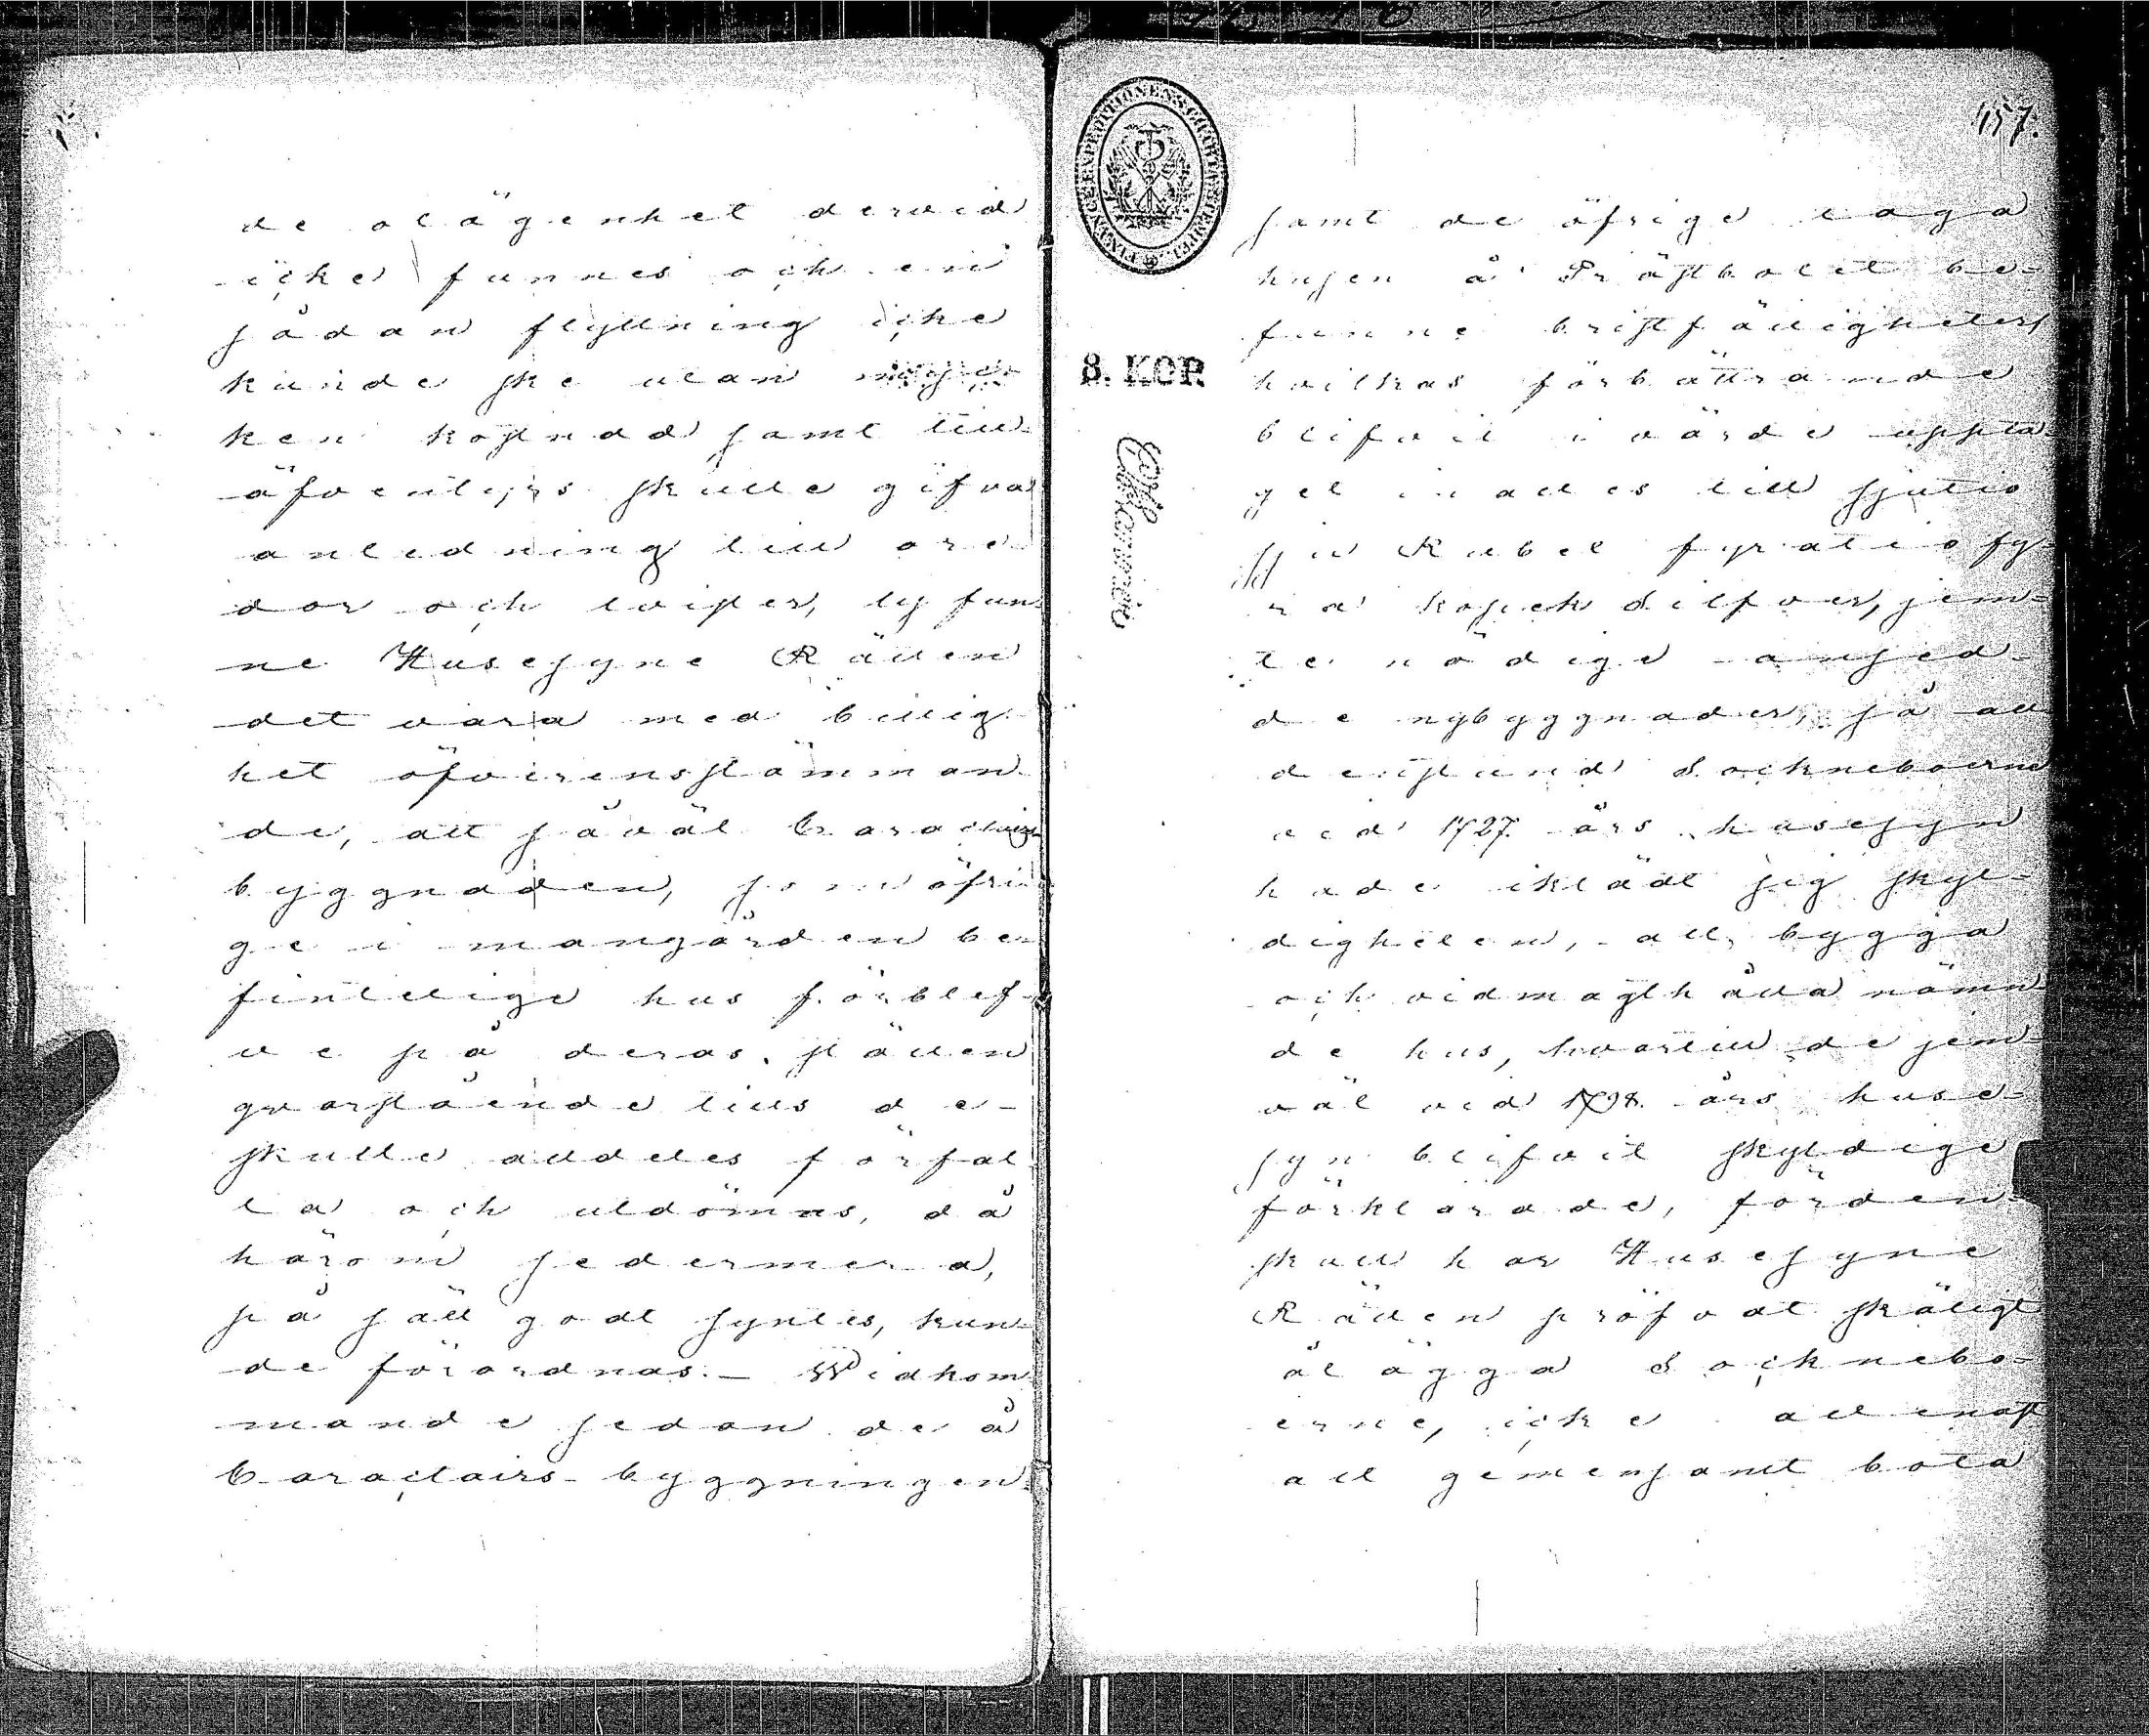 de olägenhet dervid
icke funnes och en
sådan flyttning icke
kunde ske utan myc
ken kostnad samt till
äfventyrs skulle gifva
anledning till ore
dor och tvister, ty fun
ne Husesyne Rätten
det vara med billig
het öfverensstämman
de, att såväl Caraclairs
byggnaden, som öfri
ge i mangården be
fintellige hus förblef
ve på deras ställen
qvarstående tills de
skulle alldeles förfal
la och utdömas, då
härom sedermera,
på sätt godt syntes, kun
de förordnas. – Widkom
mande sedan de å
Caraclairs-byggningen
157.
FINANCE EXPEDITIONENS CHARTÆ STEMPEL
8. KOP.
samt de öfrige laga
husen å Prästbolet be-
funne bristfälligheter
hvilkas förbättrande
blifvit i värde uppta-
get i alles till sjutio
sju Rubel fyratio fy-
ra kopek Silfver, jem-
te nödige ansed-
de nybyggnader, så att
denstund Sockneboerne
vid 1727. års husesyn
hade iklädt sig skyl-
digheten, att bygga
och vidmagthålla nämn-
de hus, hvartill de jem-
väl vid 1798. års huse-
syn blifvit skyldige
förklarade, förden-
skull har Husesyne
Rätten pröfvat skäligt
ålägga Socknebo-
erne, icke allenast
att gemensamt bota